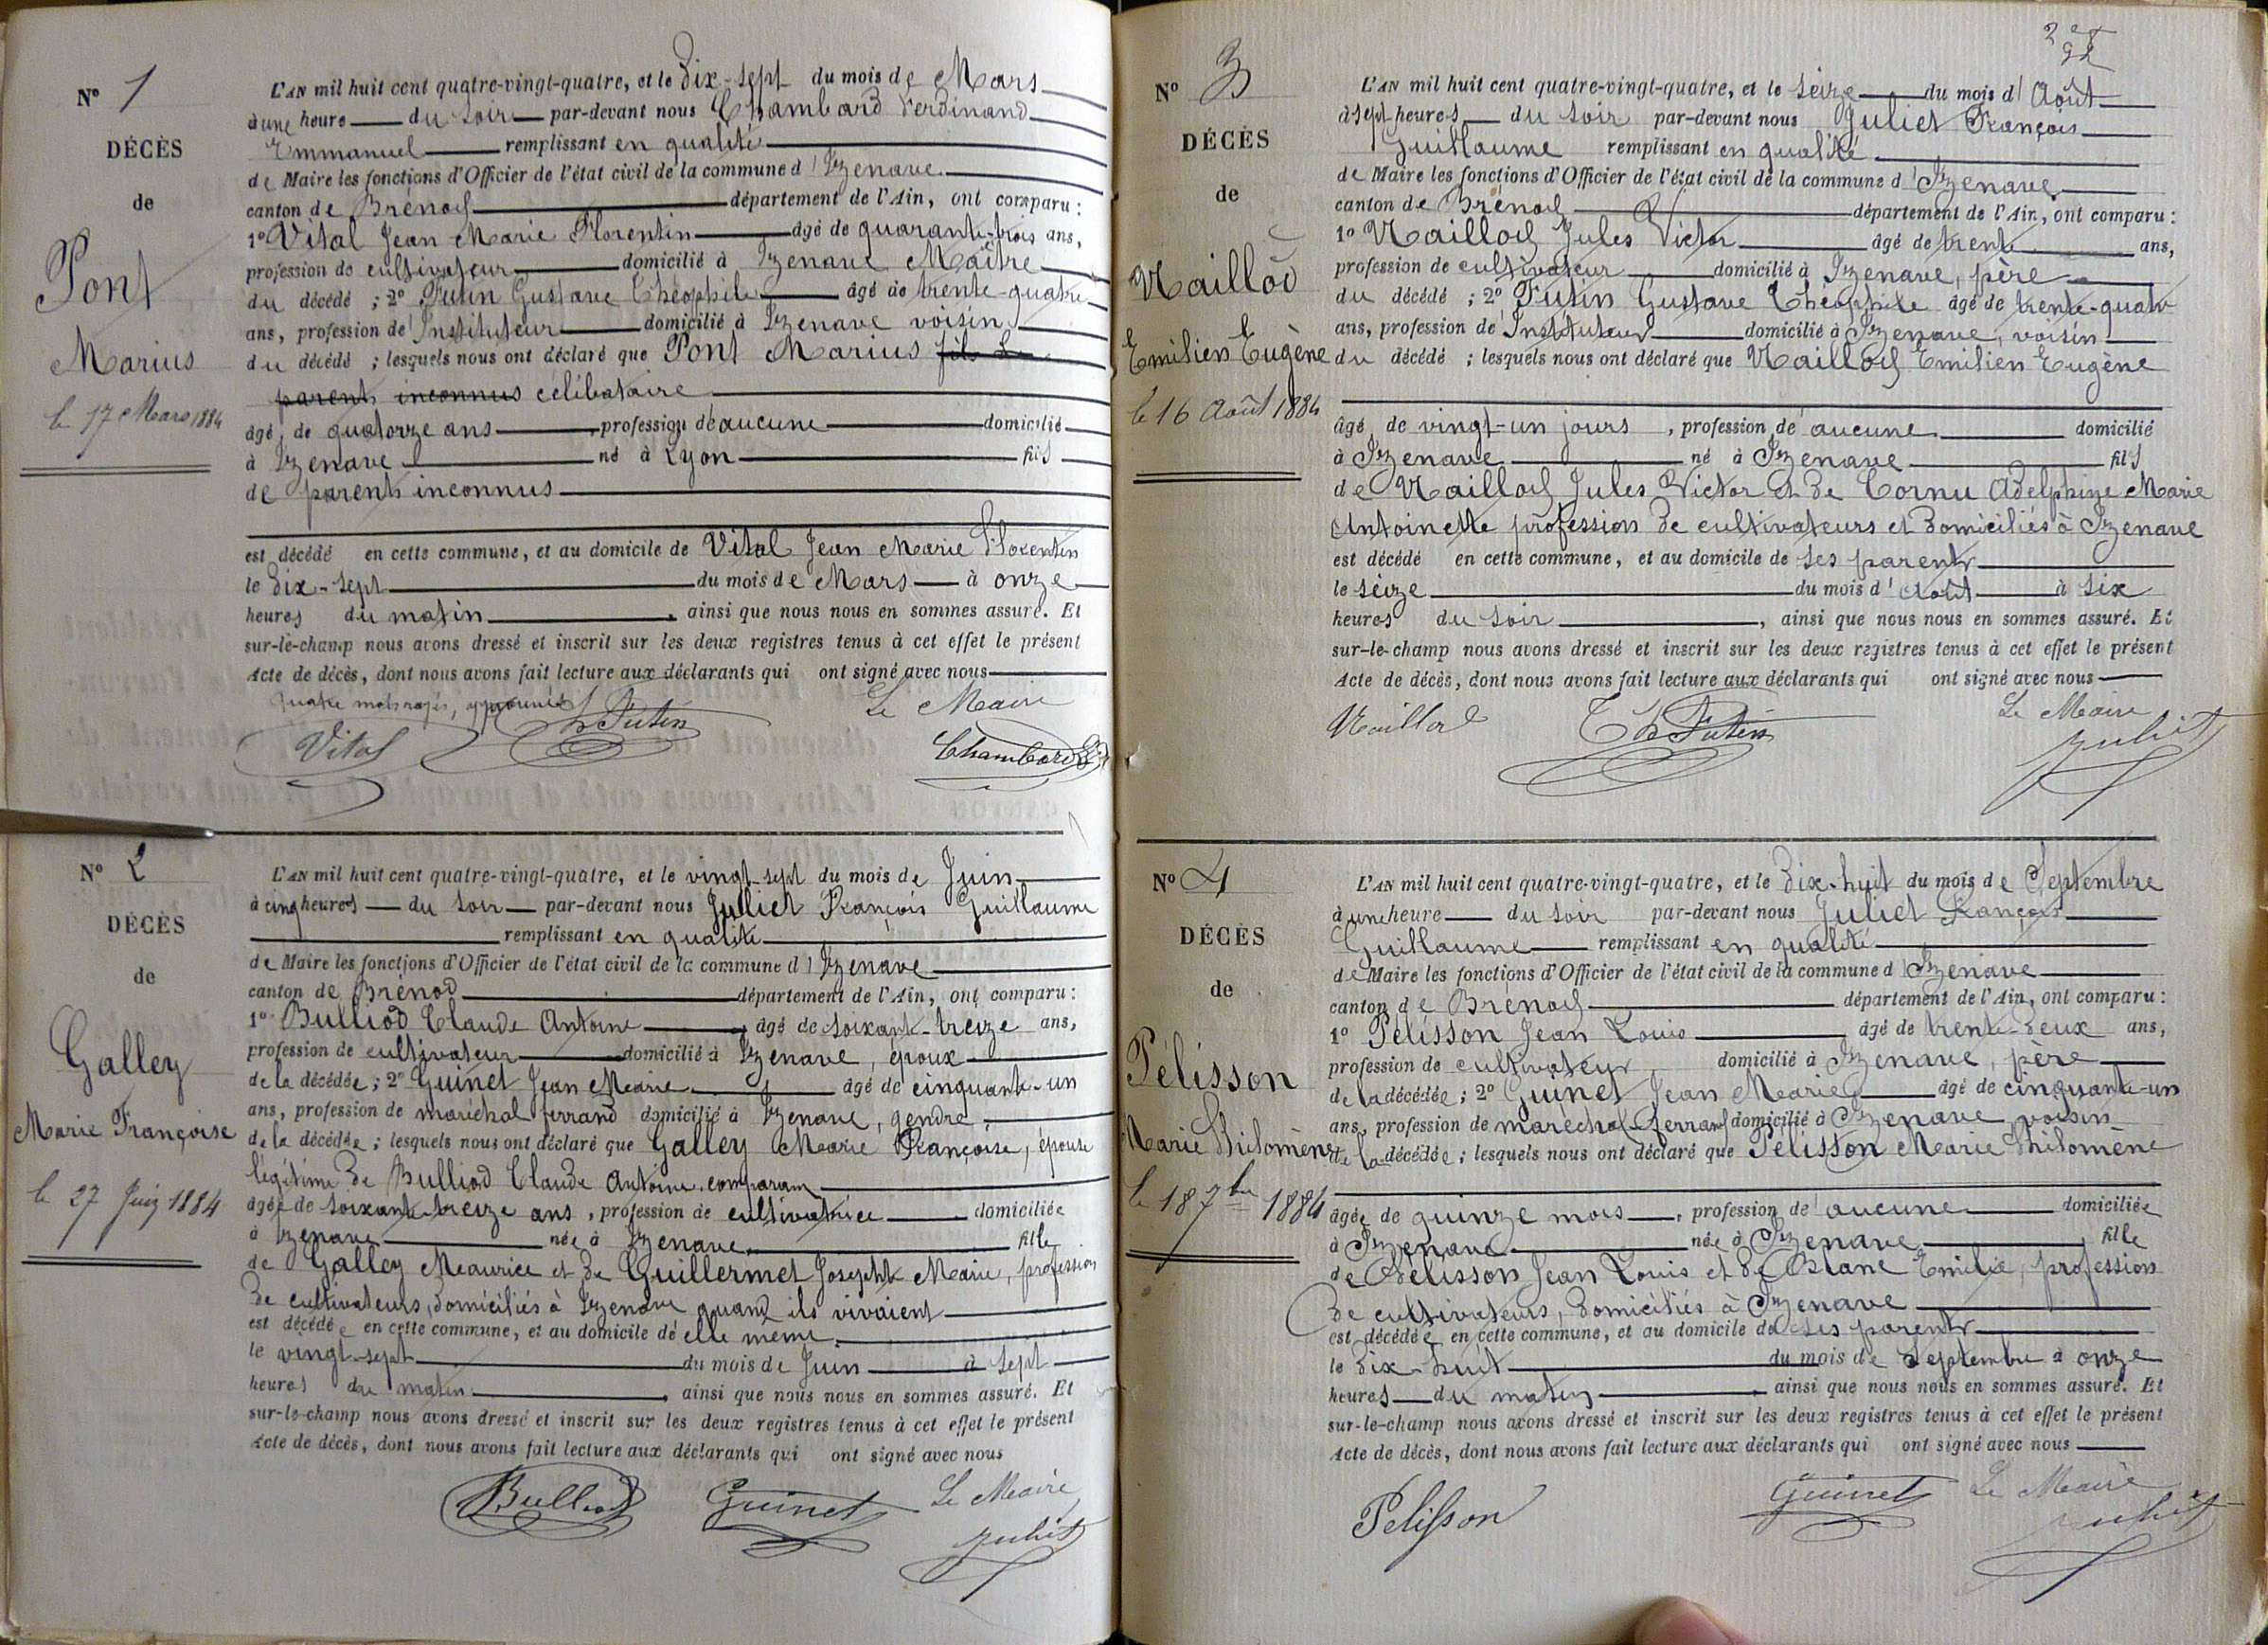 N° 1
DÉCÈS
de
Pont
Marius
le 17 Mars 1884
L'AN mil huit cent quatre-vingt-quatre, et le dix-sept du mois de Mars
à une heure du soir par-devant nous Chambard Ferdinand
Emmanuel remplissant en qualité
de Maire les fonctions d'Officier de l'état civil de la commune d'Izenave
canton de Brénod département de l'Ain, ont comparu :
1° Vital Jean Marie Florentin âgé de quarante-trois ans,
profession de cultivateur domicilié à Izenave Maître
du décédé ; 2° Futin Gustave Théophile âgé de trente-quatre
ans, profession de Instituteur domicilié à Izenave voisin
du décédé ; lesquels nous ont déclaré que Pont Marius fils de
parents inconnus célibataire
âgé de quatorze ans, profession de aucune domicilié
à Izenave né à Lyon fils
de parents inconnus
est décédé en cette commune, et au domicile de Vital Jean Marie Florentin
le dix-sept du mois de Mars à onze
heures du matin, ainsi que nous nous en sommes assuré. Et
sur-le-champ nous avons dressé et inscrit sur les deux registres tenus à cet effet le présent
Acte de décès, dont nous avons fait lecture aux déclarants qui ont signé avec nous
quatre mots rayés, approuvés Le Maire
Vital Th Futin Chambard
N° 2
DÉCÈS
de
Galley
Marie Françoise
le 27 Juin 1884
L'AN mil huit cent quatre-vingt-quatre, et le vingt-sept du mois de Juin
à cinq heures du soir par-devant nous Julliet François Guillaume
remplissant en qualité
de Maire les fonctions d'Officier de l'état civil de la commune d'Izenave
canton de Brénod département de l'Ain, ont comparu :
1° Bulliod Claude Antoine, âgé de soixante-treize ans,
profession de cultivateur domicilié à Izenave, époux
de la décédée ; 2° Guinet Jean Marie âgé de cinquante-un
ans, profession de maréchal ferrand domicilié à Izenave, gendre
de la décédée ; lesquels nous ont déclaré que Galley Marie Françoise, épouse
légitime de Bulliod Claude Antoine comparant
âgée de soixante-treize ans, profession de cultivatrice domiciliée
à Izenave née à Izenave fille
de Galley Maurice et de Guillermet Josephte Marie, profession
de cultivateurs, domiciliés à Izenave quand ils vivaient
est décédée en cette commune, et au domicile de elle même
le vingt-sept du mois de Juin à sept
heures du matin, ainsi que nous nous en sommes assuré. Et
sur-le-champ nous avons dressé et inscrit sur les deux registres tenus à cet effet le présent
Acte de décès, dont nous avons fait lecture aux déclarants qui ont signé avec nous
Bulliod Guinet Le Maire
Juliet
N° 3
DÉCÈS
de
Maillod
Emilien Eugène
le 16 Août 1884
L'AN mil huit cent quatre-vingt-quatre, et le seize du mois d'Août
à sept heures du soir par-devant nous Juliet François
Guillaume remplissant en qualité
de Maire les fonctions d'Officier de l'état civil de la commune d'Izenave
canton de Brénod département de l'Ain, ont comparu :
1° Maillod Jules Victor âgé de trente ans,
profession de cultivateur domicilié à Izenave, père
du décédé ; 2° Futin Gustave Théophile âgé de trente-quatre
ans, profession de Instituteur domicilié à Izenave, voisin
du décédé ; lesquels nous ont déclaré que Maillod Emilien Eugène
âgé de vingt-un jours, profession de aucune domicilié
à Izenave né à Izenave fils
de Maillod Jules Victor et de Cornu Adelphine Marie
Antoinette profession de cultivateurs et domiciliés à Izenave
est décédé en cette commune, et au domicile de ses parents
le seize du mois d'Août à six
heures du soir, ainsi que nous nous en sommes assuré. Et
sur-le-champ nous avons dressé et inscrit sur les deux registres tenus à cet effet le présent
Acte de décès, dont nous avons fait lecture aux déclarants qui ont signé avec nous
Maillod Th Futin Le Maire
Juliet
N° 4
DÉCÈS
de
Pélisson
Marie Philomène
le 18 7bre 1884
L'AN mil huit cent quatre-vingt-quatre, et le dix-huit du mois de Septembre
à une heure du soir par-devant nous Juliet François
Guillaume remplissant en qualité
de Maire les fonctions d'Officier de l'état civil de la commune d'Izenave
canton de Brénod département de l'Ain, ont comparu :
1° Pélisson Jean Louis âgé de trente-deux ans,
profession de cultivateur, domicilié à Izenave, père
de la décédée ; 2° Guinet Jean Marie âgé de cinquante-un
ans, profession de maréchal-ferrand domicilié à Izenave voisin
de la décédée ; lesquels nous ont déclaré que Pélisson Marie Philomène
âgée de quinze mois, profession de aucune domiciliée
à Izenave née à Izenave fille
de Pélisson Jean Louis et de Blanc Emilie, profession
de cultivateurs, domiciliés à Izenave
est décédée en cette commune, et au domicile de ses parents
le dix-huit du mois de Septembre à onze
heures du matin, ainsi que nous nous en sommes assuré. Et
sur-le-champ nous avons dressé et inscrit sur les deux registres tenus à cet effet le présent
Acte de décès, dont nous avons fait lecture aux déclarants qui ont signé avec nous
Pelisson Guinet Le Maire
Juliet